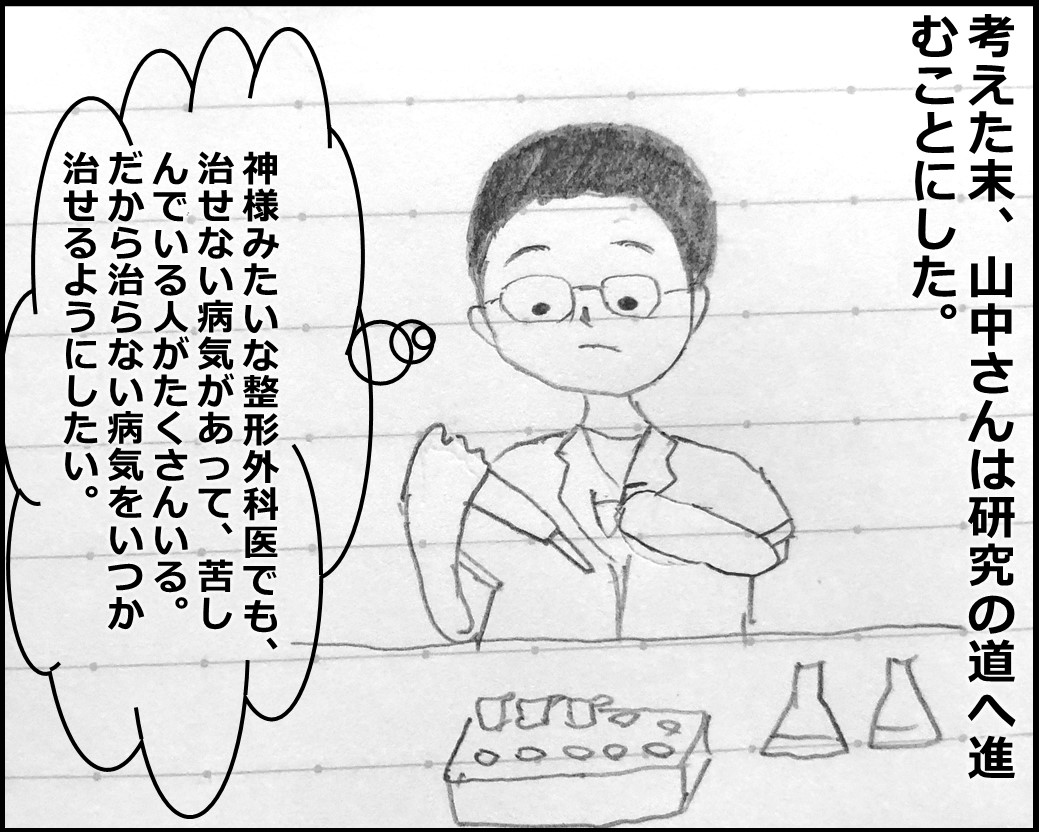 考えた末、山中さんは研究の道へ進
むことにした。
神様みたいな整形外科医でも、
治せない病気があって、苦し
んでいる人がたくさんいる。
だから治らない病気をいつか
治せるようにしたい。